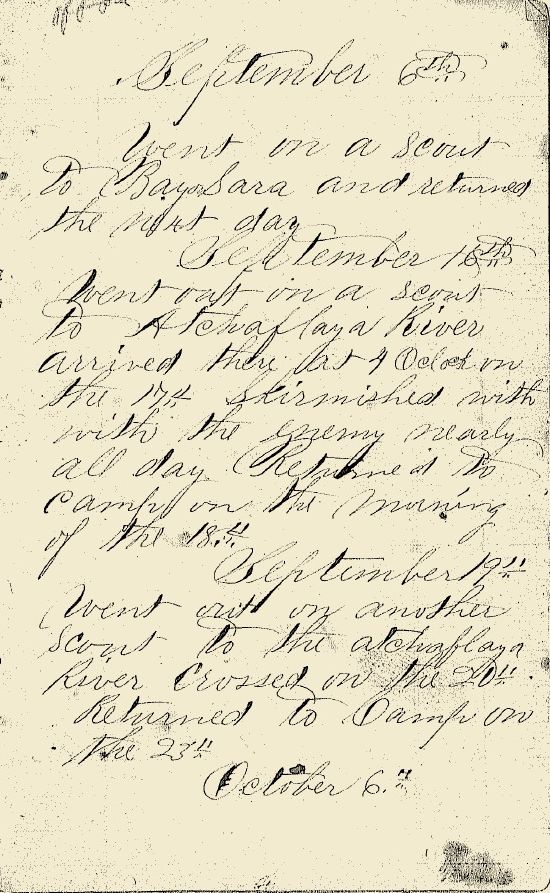 September 6th
Went on a scout
to Bayo Sara and returned
the next day
September 16th
Went out on a scout
to Atchaflaya River
arrived there at 4 Oclock on
the 17th Skirmished with
with the enemy nearly
all day Returned to
Camp on the morning
of the 18th
September 19th
Went out on another
Scout to the atchaflaya
River Crossed on the 20th
Returned to Camp on
the 23th
October 6th